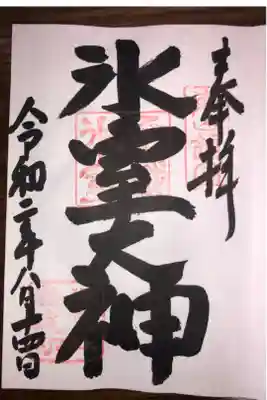 奉拝
氷室大神
令和二年八月十四日